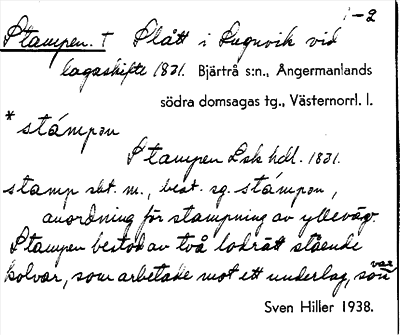 1-2
Stampen. † Slått i Lugnvik vid
lagaskifte 1831. Bjärtrå s:n., Ångermanlands
södra domsagas tg., Västernorrl. l.
* stámpən
Stampen Lsk hdl. 1831.
stamp sbt. m., best. sg. stámpən,
anordning för stampning av yllevägv.
Stampen bestod av två lodrätt stående
kolvar, som arbetade mot ett underlag, som
var
Sven Hiller 1938.